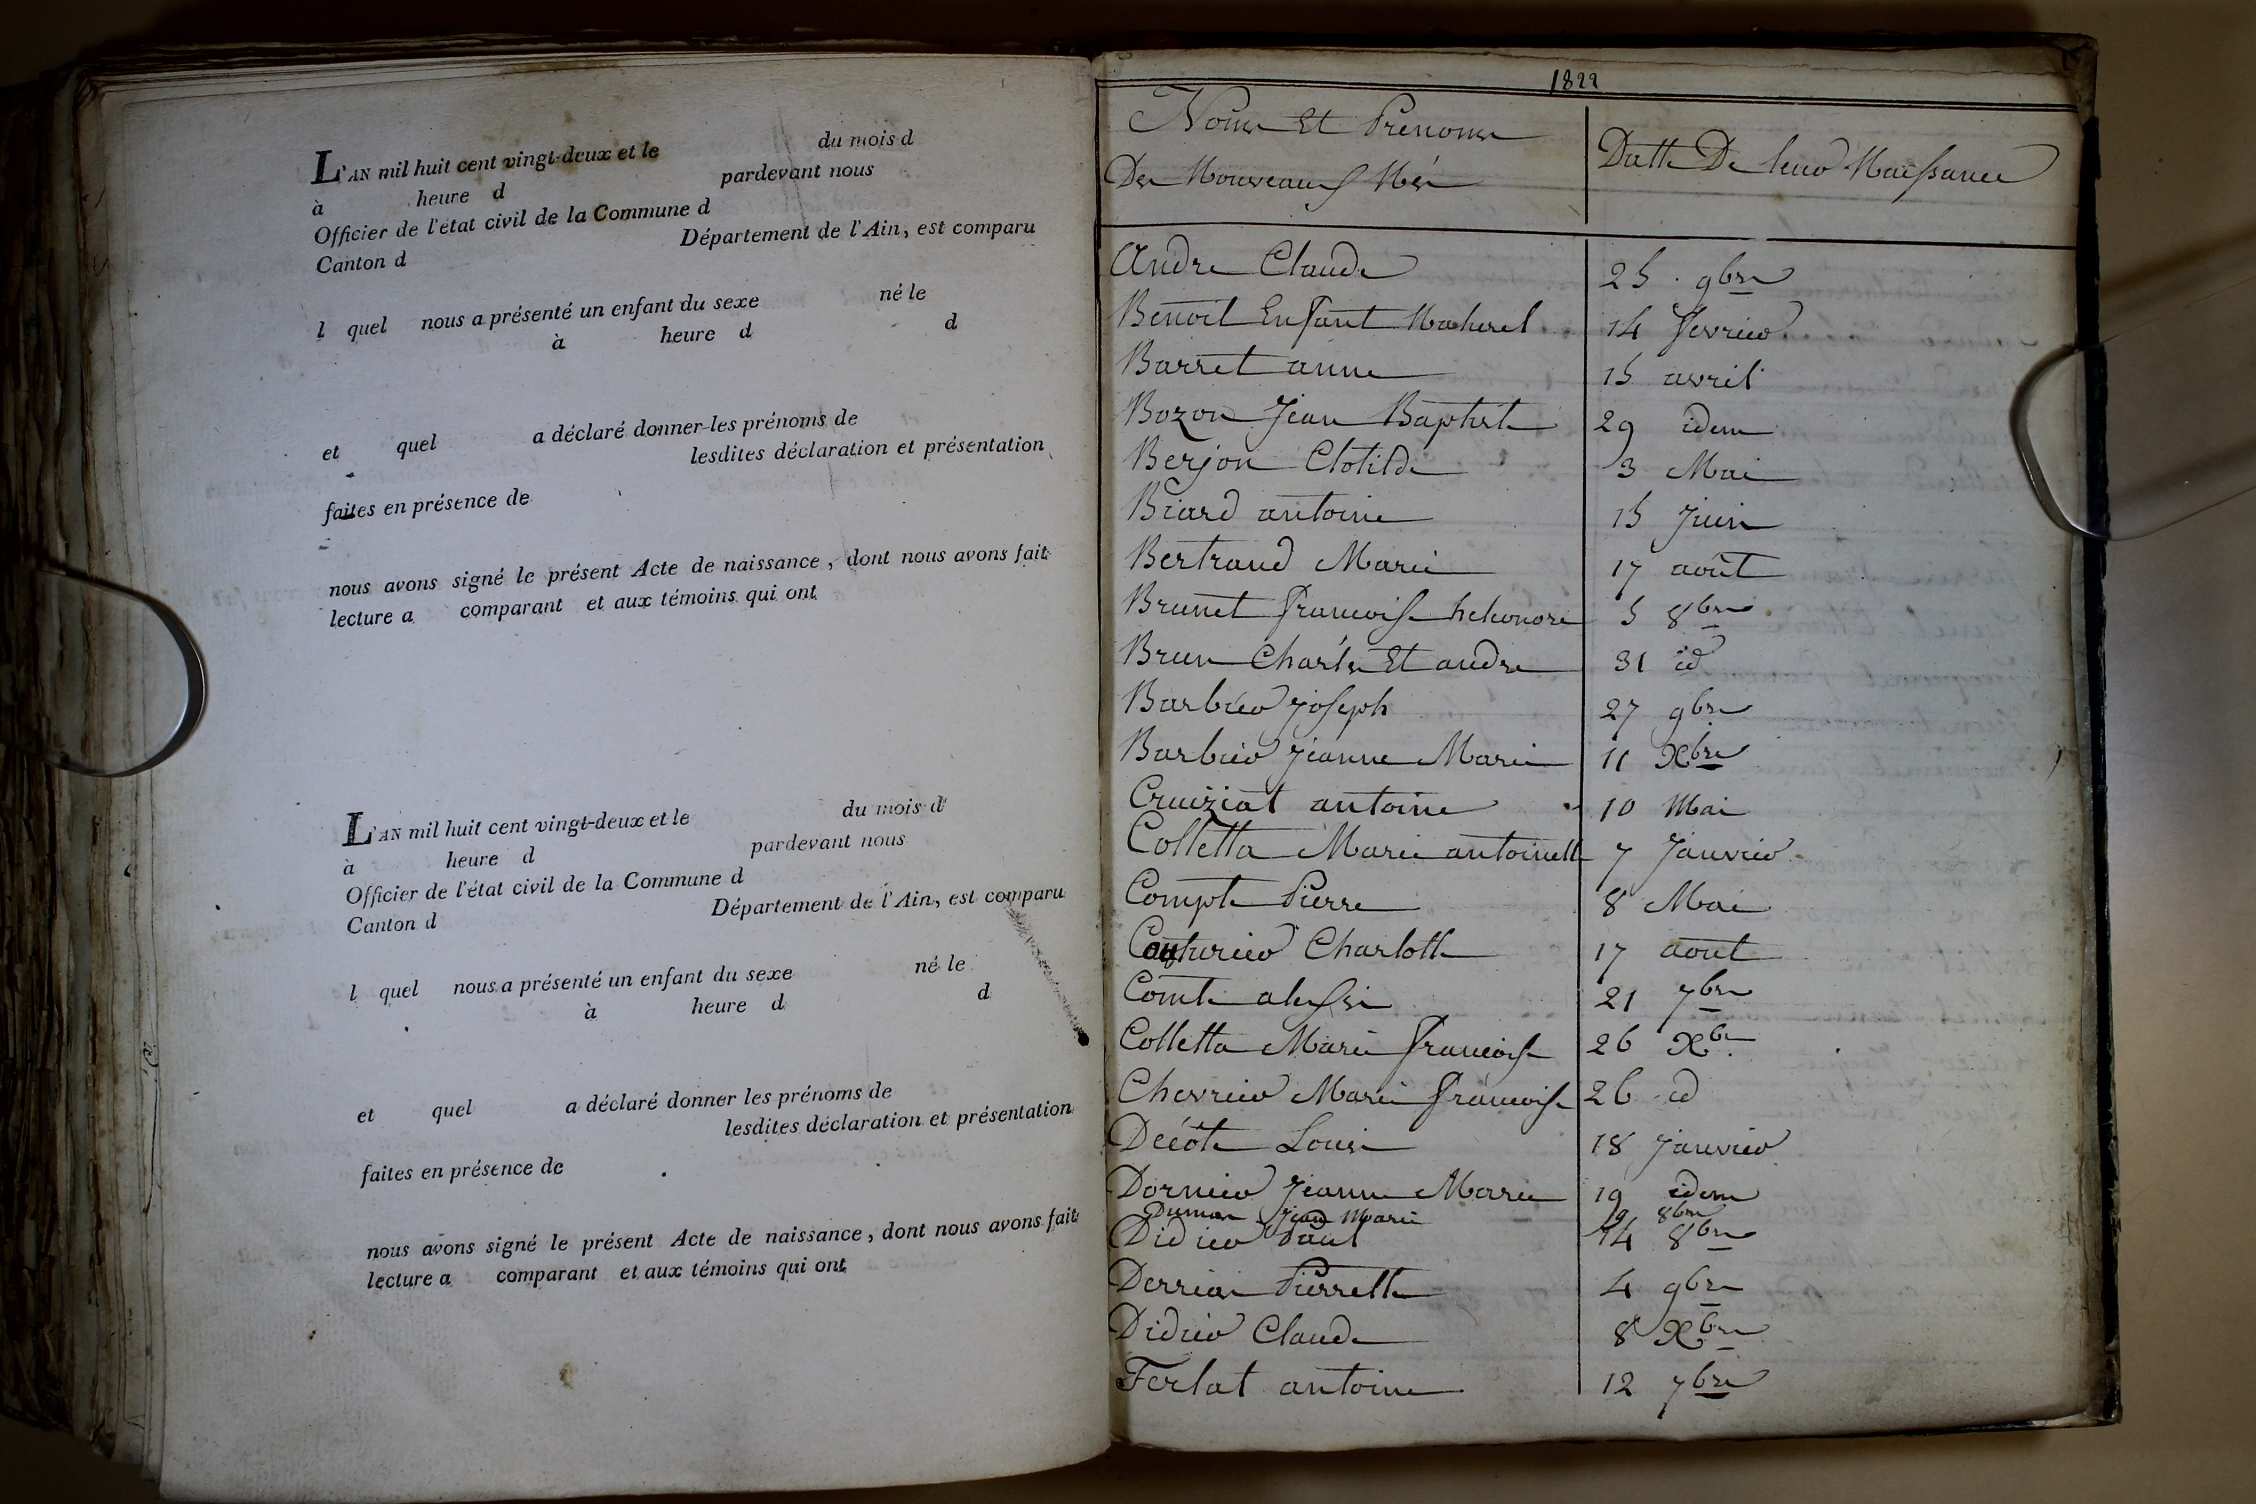 L'AN mil huit cent vingt-deux et le du mois d
à heure d pardevant nous
Officier de l'état civil de la Commune d
Canton d Département de l'Ain, est comparu
l quel nous a présenté un enfant du sexe né le
à heure d d
et quel a déclaré donner les prénoms de
lesdites déclaration et présentation
faites en présence de
nous avons signé le présent Acte de naissance, dont nous avons fait
lecture a comparant et aux témoins qui ont
L'AN mil huit cent vingt-deux et le du mois d
à heure d pardevant nous
Officier de l'état civil de la Commune d
Canton d Département de l'Ain, est comparu
l quel nous a présenté un enfant du sexe né le
à heure d d
et quel a déclaré donner les prénoms de
lesdites déclaration et présentation
faites en présence de
nous avons signé le présent Acte de naissance, dont nous avons fait
lecture a comparant et aux témoins qui ont
1822
Noms Et Prenoms
Des Nouveaux Nés
Datte De leur Naissance
Andre Claude 25 9bre
Benoit Enfant Naturel 14 fevrier
Barret anne 15 avril
Bozon Jean Baptiste 29 idem
Berjon Clotilde 3 Mai
Biard antoine 15 Juin
Bertrand Marie 17 août
Brunet francoise 5 8bre
Brun Charles Et andre 31 id
Barbier joseph 27 9bre
Barbier jeanne Marie 11 Xbre
Cruiziat antoine 10 Mai
Colletta Marie antoinette 7 Janvier
Compte Pierre 8 Mai
Couturier Charlotte 17 aout
Comte 21 7bre
Colletta Marie francoise 26 Xbre
Chevrier Marie francoise 26 id
Décôte Louis 18 janvier
Dornier Jeanne Marie 19 idem
Dumas Jean Marie 19 8bre
Didier Paul 14 8bre
Derrias Pierrette 4 9bre
Didier Claude 8 Xbre
Ferlat antoine 12 7bre